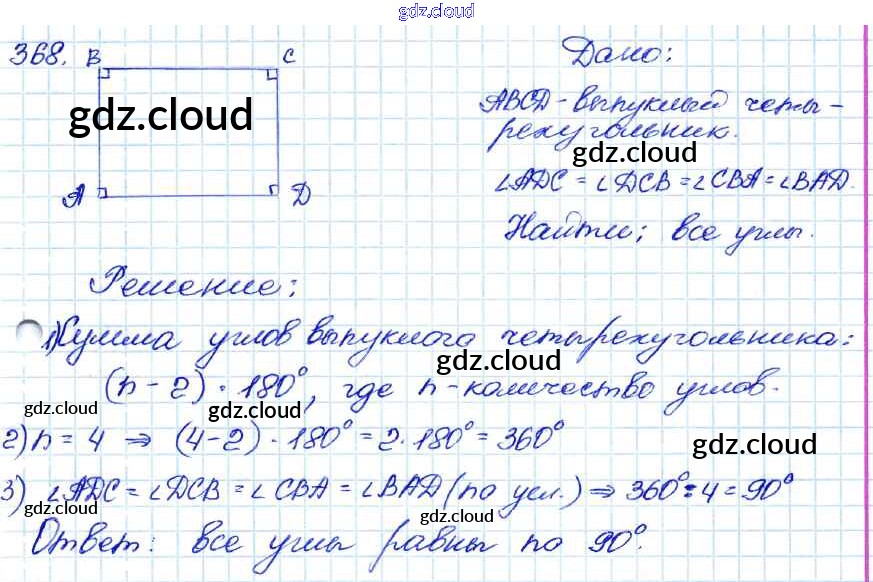 gdz.cloud
368. B C Дано:
ABCD - выпуклый четы-
рехугольник.
gdz.cloud
gdz.cloud
∠ADC = ∠DCB = ∠CBA = ∠BAD.
A D
Найти: все углы.
Решение:
1) Сумма углов выпуклого четырехугольника:
gdz.cloud
(n - 2) · 180°, где n - количество углов.
gdz.cloud gdz.cloud
2) n = 4 ⇒ (4-2) · 180° = 2 · 180° = 360°
gdz.cloud
3) ∠ADC = ∠DCB = ∠CBA = ∠BAD (по усл.) ⇒ 360° : 4 = 90°
gdz.cloud gdz.cloud
Ответ: все углы равны по 90°.